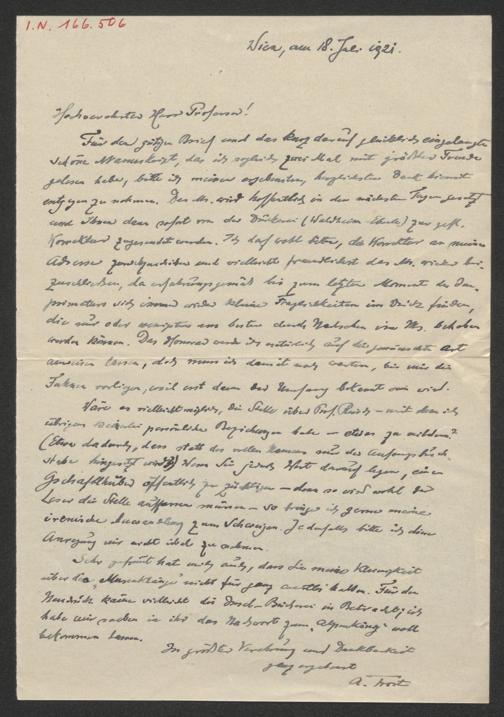 I.N. 166.506
Wien, am 18. Juli 1921.
Hochverehrter Herr Professor!
Für den gütigen Brief und das kurz darauf glücklich eingelangte
schöne Manuskript, das ich sogleich zwei Mal mit größter Freude
gelesen habe, bitte ich meinen ergebensten, herzlichsten Dank hiemit
entgegen zu nehmen. Das Ms. wird hoffentlich in den nächsten Tagen gesetzt
und Ihnen dann sofort von der Drückerei (Waldheim-Eberle) zur gefl.
Korrektur zugesandt werden. Ich darf wohl bitten, die Korrektur an meine
Adresse zurückzuleiten und vielleicht freundlichst das Ms. wieder bei-
zuschließen, da erfahrungsgemäß bis zum letzten Moment des Im-
primaturs sich immer wieder kleine Fraglichkeiten im Druck finden,
die nur oder wenigstens am besten durch Nachsehen im Ms. behoben
werden können. Das Honorar werde ich natürlich auf die gewünschte Art
anweisen lassen, doch muss ich damit noch warten, bis mir die
Fahnen vorliegen, weil erst dann der Umfang bekannt sein wird.
Wäre es vielleicht möglich, die Stelle über Prof. – mit dem ich
übrigens keinerlei persönliche Beziehungen habe – etwas zu mildern?
(Etwa dadurch, dass statt des vollen Namens nur der Anfangsbuch-
stabe hingesetzt wird?) Wenn Sie jedoch Wert darauf legen, einen
Gschaftlhuber öffentlich zu züchtigen – denn so wird wohl der
Leser die Stelle auffassen müssen – so bringe ich gerne meine
irenische Anwandlung zum Schweigen. Jedenfalls bitte ich diese
Anregung mir nicht übel zu nehmen.
Sehr gefreut hat mich auch, dass Sie meine Kleinigkeit
über die nicht für ganz wertlos halten. Für den
Neudruck käme vielleicht die Insel-Bücherei in Betracht; ich
habe mir soeben in ihr das Nachwort zum „Alpenkönig“ voll
bekommen lassen.
In größter Verehrung und Dankbarkeit
ganz ergebenst